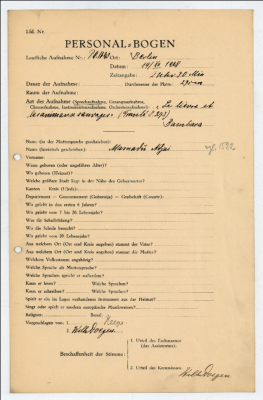 Lfd. Nr.
PERSONAL-BOGEN
Lautliche Aufnahme Nr.: Ort: Berlin
Datum:
Zeitangabe:
Dauer der Aufnahme: Durchmesser der Platte:
Raum der Aufnahme:
Art der Aufnahme (Sprechaufnahme, Gesangsaufnahme,
Choraufnahme, Instrumentenaufnahme, Orchesteraufnahme): Le lièvre et
Bambara
Name (in der Muttersprache geschrieben):
Name (lateinisch geschrieben): Mamadu
Vorname:
Wann geboren (oder ungefähres Alter)?
Wo geboren (Heimat)?
Welche größere Stadt liegt in der Nähe des Geburtsortes?
Kanton — Kreis (Ujedz):
Department — Gouvernement (Gubernija) — Grafschaft (County):
Wo gelebt in den ersten 6 Jahren?
Wo gelebt vom 7. bis 20. Lebensjahr?
Was für Schulbildung?
Wo die Schule besucht?
Wo gelebt vom 20. Lebensjahr?
Aus welchem Ort (Ort und Kreis angeben) stammt der Vater?
Aus welchem Ort (Ort und Kreis angeben) stammt die Mutter?
Welchem Volksstamm angehörig?
Welche Sprache als Muttersprache?
Welche Sprachen spricht er außerdem?
Kann er lesen? Welche Sprachen?
Kann er schreiben? Welche Sprachen?
Spielt er ein im Lager vorhandenes Instrument aus der Heimat?
Singt oder spielt er moderne europäische Musikweisen?
Religion: Beruf:
Vorgeschlagen von: 1.
2. Wilh. Doegen
Beschaffenheit der Stimme:
1. Urteil des Fachmannes
(des Assistenten):
2. Urteil des Kommissars:
Wilh. Doegen